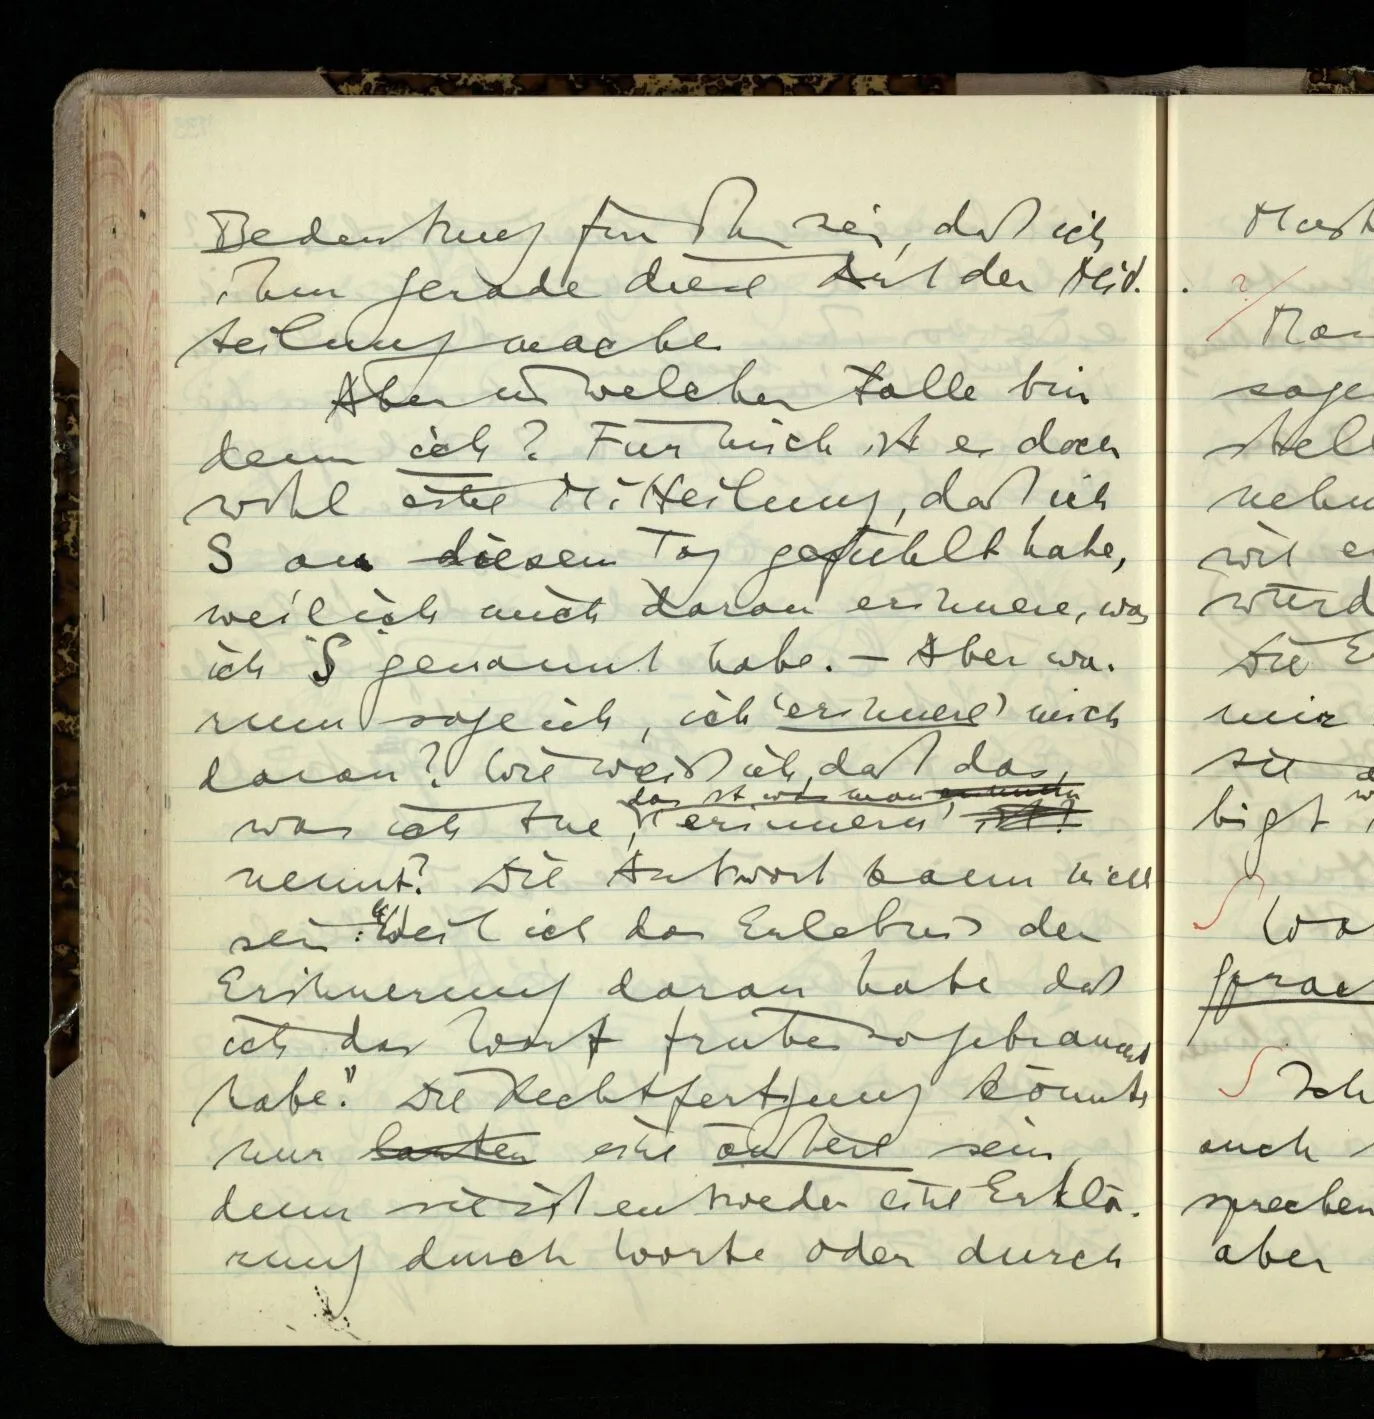 Bedeutung für ihn sei, daß ich
ihm gerade diese Art der Mit-
teilung mache.
Aber in welcher Falle bin
denn ich? Für mich ist es doch
wohl eine Mitteilung, daß ich
S an diesem Tag gefühlt habe,
weil ich mich daran erinnere, was
ich 'S' genannt habe. – Aber wa-
rum sage ich, ich 'erinnere' mich
daran? Wie weiß ich, daß das,
das ist was man
was ich tue, 'erinnern' ist?
nennt? Die Antwort kann nicht
sein: "Weil ich das Erlebnis der
Erinnerung daran habe daß
ich das Wort früher so gebraucht
habe". Die Rechtfertigung könnte
nur lauten eine äußere sein,
denn sie ist entweder eine Erklä-
rung durch Worte oder durch
?/
soge
stell
nehm
wir
würd
Die E
mir
sie
bigt
Wa
sprac
Ich
auch
sprechen
aber